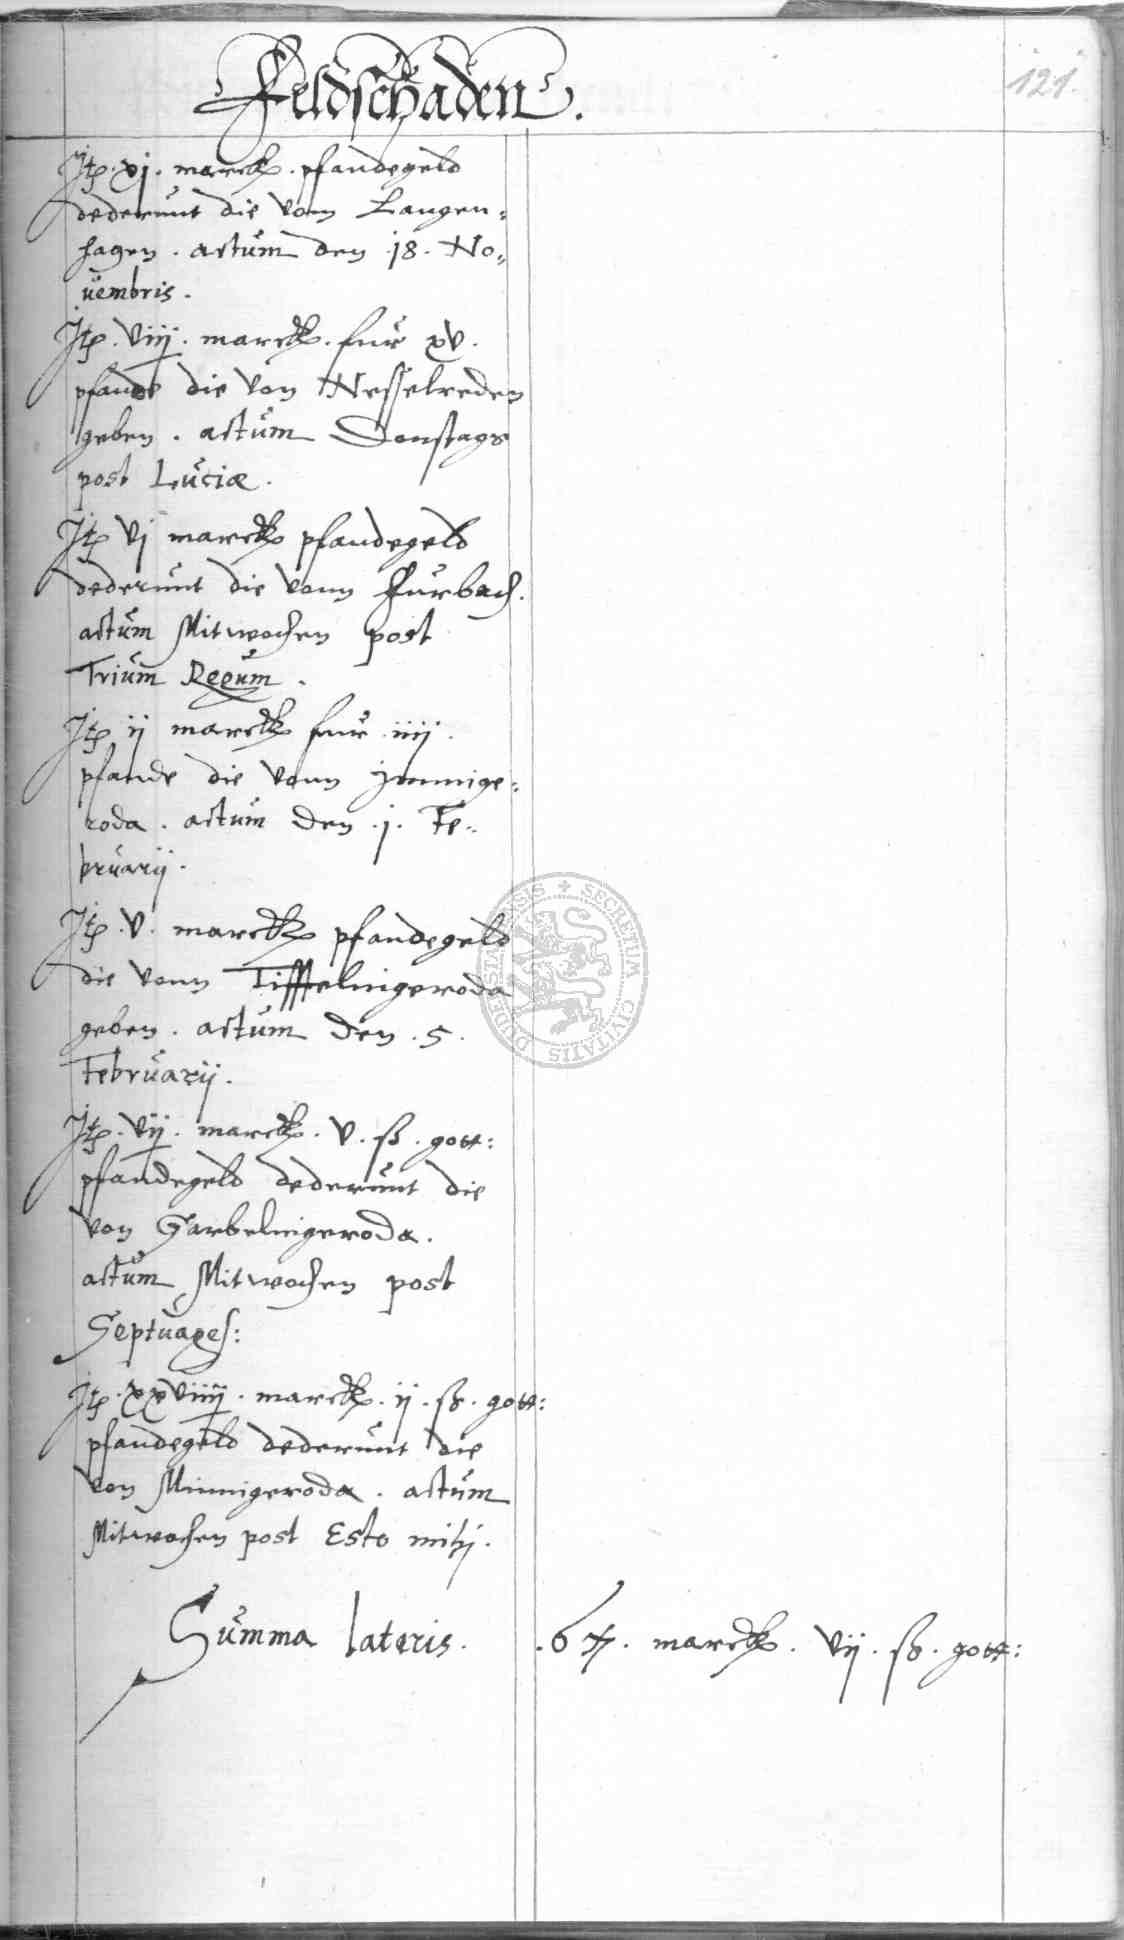 Feldschaden.
121.
Jt. xj. marck. pfandegeld
dederunt die vom Langen-
hagen. actum den .18. No-
uembris.
Jt. viij. marck. fur xv.
pfande die von Nesselreden
geben. actum Donstags
post Luciæ.
Jt. vj marck pfandegeld
dederunt die vonn Furbach.
actum Mitwochen post
Trium Regum.
Jt. ij marck fur iiij.
pfande die vonn Jmmige-
roda. actum den .j. Fe-
bruarij.
Jt. v. marck pfandegeld
die vonn Tifftelnigeroda
geben. actum den .5.
Februarij.
Jt. vij. marck. v. ß. gott:
pfandegeld dederunt die
von Garbelnigeroda.
actum Mitwochen post
Septuages:
Jt. xxviiij. marck. ij. ß. gott:
pfandegeld dederunt die
von Minnigeroda. actum
Mitwochen post Esto mihj.
Summa lateris. .67. marck. vij. ß. gott:
SECRETUM CIVITATIS DUDERSTADENSIS